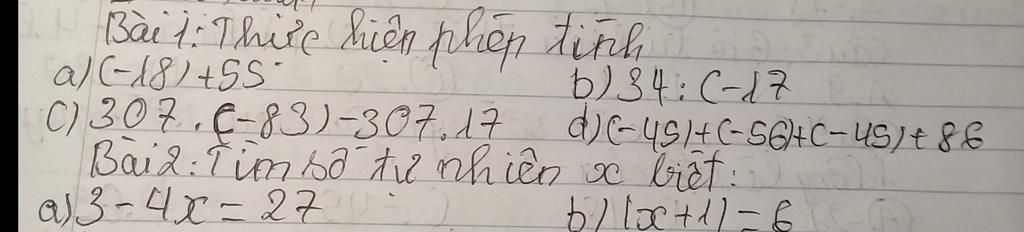 Bài 1: Thực hiện phép tính
a) (-18) + 55 b) 34 : (-17
c) 307 . (-83) - 307 . 17 d) (-45) + (-56) + (-45) + 86
Bài 2: Tìm số tự nhiên x biết:
a) 3 - 4x = 27 b) |x + 1| = 6